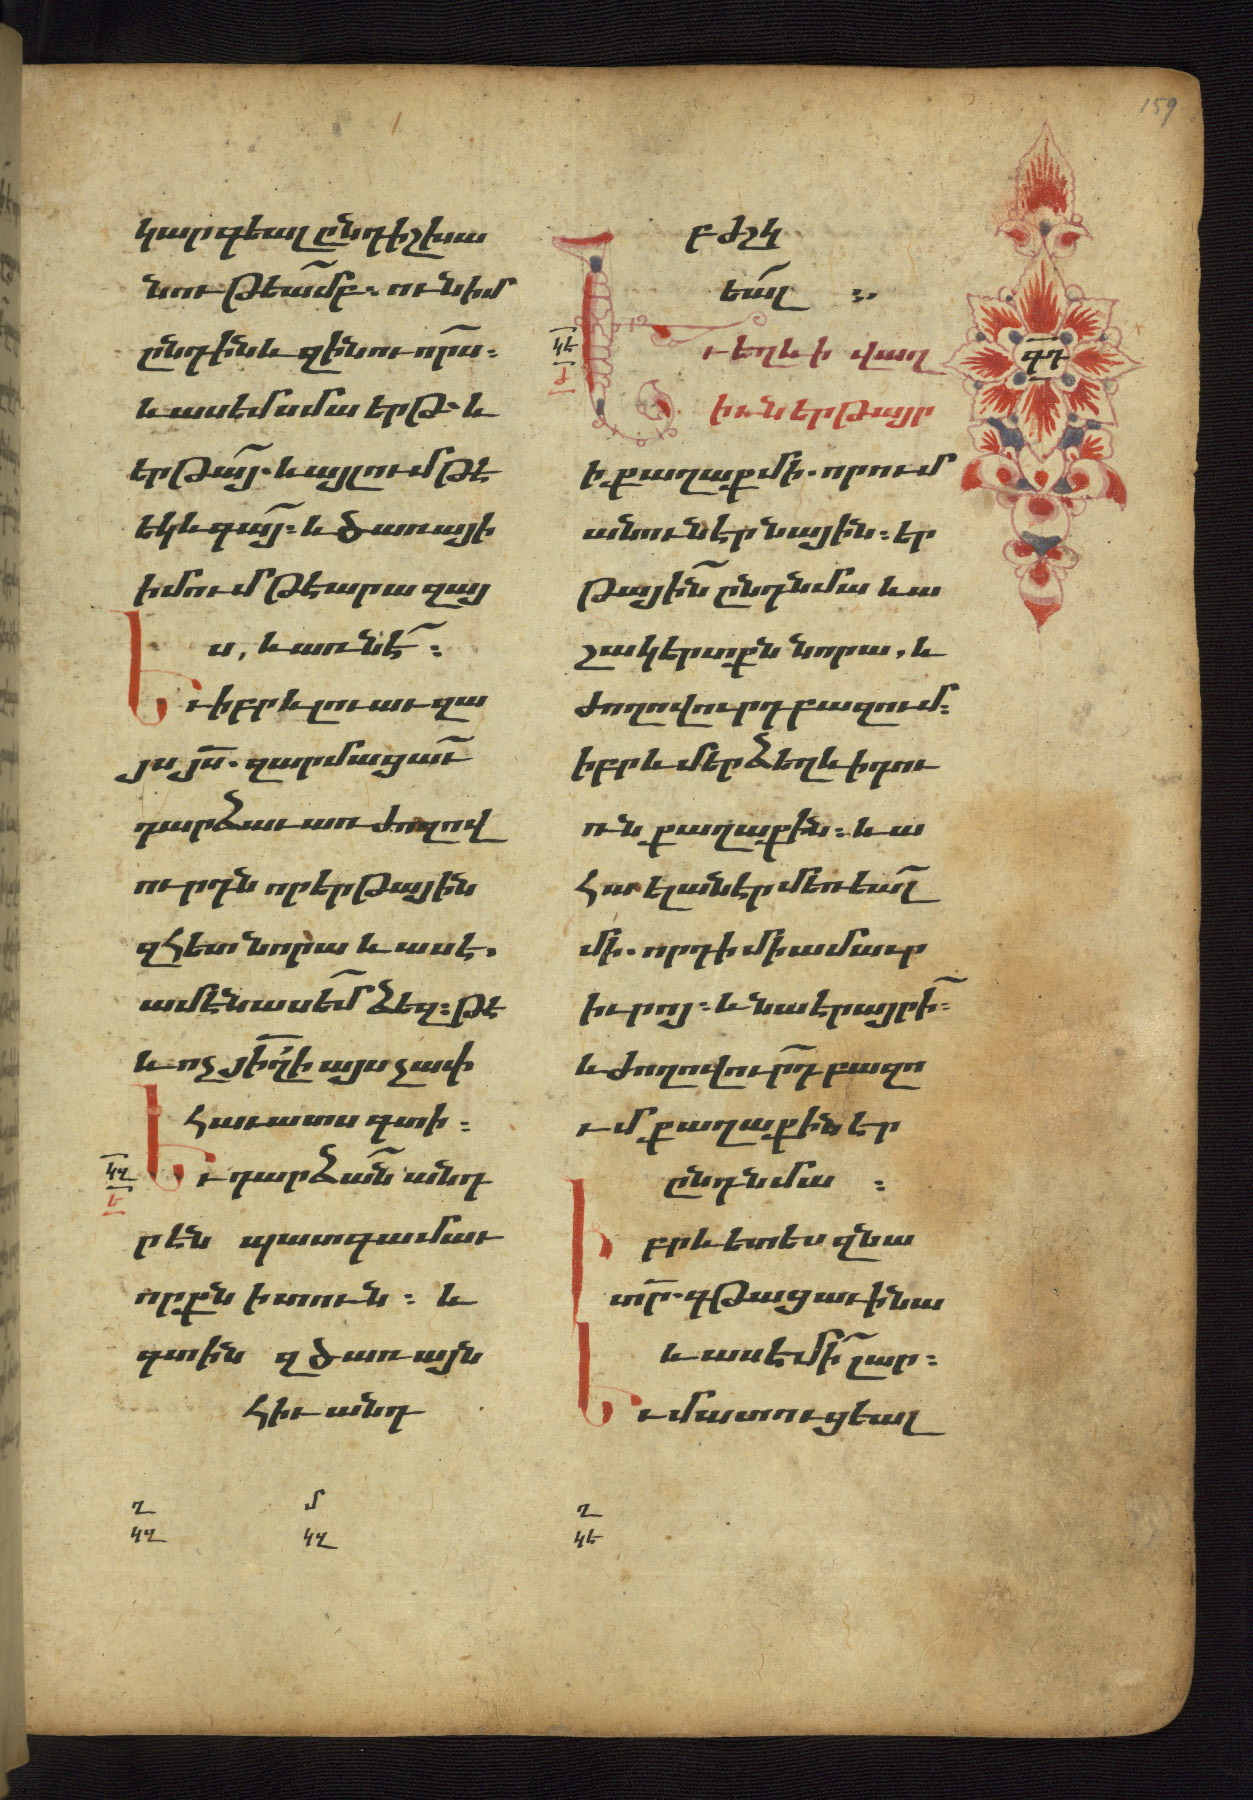 159
կարգեալ ընդ իշխա
նութեա̄մբ. ունիմ
ընդ ինև զինուորս̄:
և ասեմ սմա երթ և
երթա̄յ. և այլում թէ
եկ և գա̄յ: և ծառայի
իմում թէ արա զայ
ս, և առնէ̄:
Եւ իբրև լուաւ զա
յս յս̄. զարմացաւ̄
դարձաւ առ ժողով
ուրդն որ երթային
զհետ նորա և ասէ.
ամէն ասեմ̄ ձեզ: թէ
և ոչ յիղ̄ի այսչափ
հաւատս գտի:
կզ
ե
Եւ դարձան̄ անդ
րէն պատգամաւ
որքն ի տուն: և
գտին զծառայն
հիւանդ
ղ
կզ
մ
կզ
բժշկ
եալ̄ :.
կե
ժ
Եւ եղև ի վաղ
իւն երթայր
ի քաղաք մի. որում
անուն էր նային: եր
թային̄ ընդ նմա և ա
շակերտքն նորա, և
ժողովուրդ բազում:
իբրև մերձ եղև ի դու
ռն քաղաքին: և ա
հաւելանէր մեռեալ̄
մի. որդի միամաւր
իւրոյ: և նա էր այրի̄:
և ժողովուրդ̄ բազո
ւմ քաղաքին էր
ընդ նմա :
Իբրև ետես զնա
տր̄. գթացաւ ի նա
և ասէ մի̄ լար:
Եւ մատուցեալ
գդ
ղ
կե